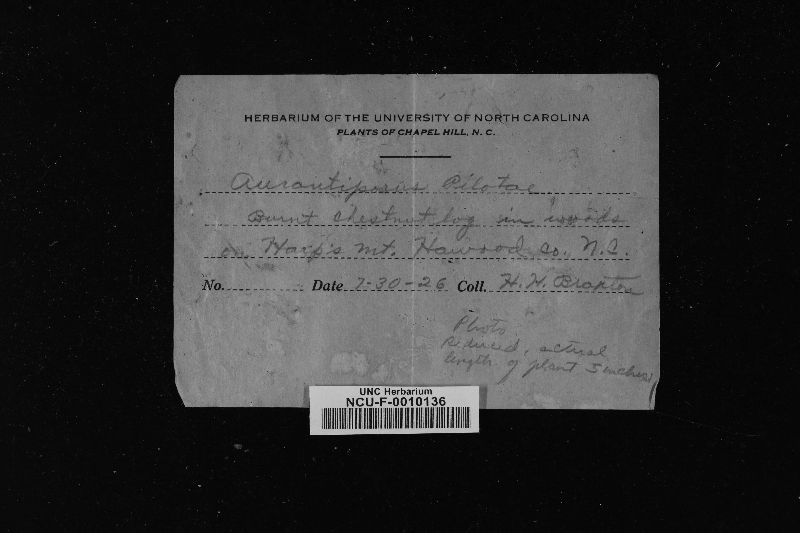 HERBARIUM OF THE UNIVERSITY OF NORTH CAROLINA
PLANTS OF CHAPEL HILL, N. C.
Aurantiporus Pilotae
Burnt chestnut log in woods
on Harp's Mt. Hawood co. N.C.
No. Date 7-30-26 Coll. H. H. Braxton
Photo
Reduced, actual
length of plant 5 inches
UNC Herbarium
NCU-F-0010136